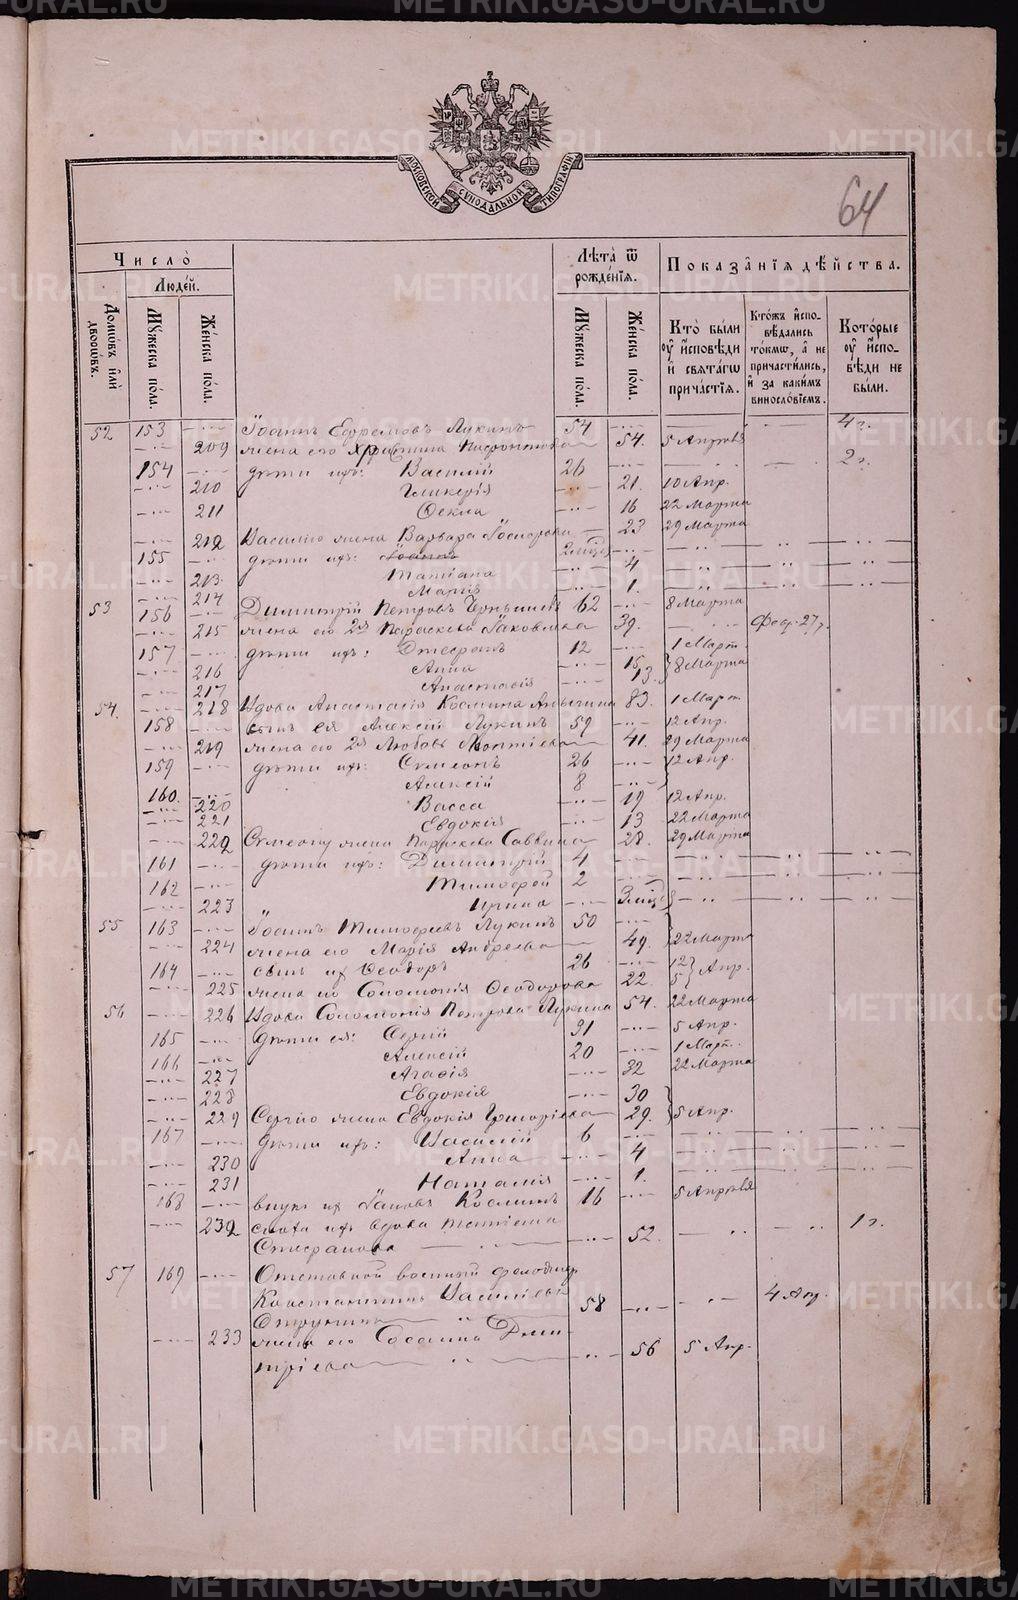 МОСКОВСКОЙ СѴНОДАЛЬНОЙ ТИПОГРАФІИ
64
Число̀
Люде́й.
Домѡ́въ и҆лѝ дворѡ́въ.
Мꙋ́жеска по́ла.
Же́нска по́ла.
Лѣ́та ѿ рожде́нїя.
Мꙋ́жеска по́ла.
Же́нска по́ла.
Показа̑нїя дѣ́йства.
Кто̀ бы́ли оу҆ и҆́сповѣди и҆ свята́гѡ прича́стїя.
Кто́жъ и҆сповѣ́дались то́кмѡ, а҆ не причасти́лись, и҆ за каки́мъ винослові́емъ.
Кото́рые оу҆ и҆́сповѣди не бы́ли.
52 153 Іоаннъ Ефремовъ Лукинъ 54 4 г.
209 жена его Христина 54. 5 Апрѣля
154 дѣти ихъ: Василій 26 2 г.
210 Гликерія 21. 10 Апр.
211 Ѳекла 16 22 Марта
212 Василію жена Варвара 23 29 Марта
155 дѣти ихъ: Іоаннъ
213. Татіана 4
214 Марія 1.
53 156 Димитрій Петровъ 62 8 Марта
215 жена его 2я Параскева Іаковлева 39. Февр. 27
157 дѣти ихъ: Стефанъ 12 1 Март.
216 Анна 15 8 Марта
217 Анастасія 13.
54. 218 Вдова Анастасія Космина 83. 1 Март.
158 сынъ ея Алексій Лукинъ 59 12 Апр.
219 жена его 2я Любовь Леонтіева 41. 29 Марта
159 дѣти ихъ: Симеонъ 26 12 Апр.
160. Алексій 8
220 Васса 19 12 Апр.
221 Евдокія 13 22 Марта
222 Симеону жена Параскева Саввина 28. 29 Марта
161 дѣти ихъ: Димитрій 4
162 Тимоѳей 2
223 Ирина 3 мѣс
55 163 Іоаннъ Тимоѳеевъ Лукинъ 50
224 жена его Марія Андреева 49. 22 Марта
164 сынъ их Ѳеодоръ 26 12 Апр.
225 жена его Соломонія Ѳеодорова 22. 5
56 226 Вдова Соломонія Петрова Лукина 54. 22 Марта
165 дѣти ея: Сергій 31 5 Апр.
166 Алексій 20 1 Март.
227 Агафія 32 22 Марта
228 Евдокія 30
229 Сергію жена Евдокія Григоріева 29. 5 Апр.
167 дѣти ихъ: Василій 6
230 Анна 4
231 Наталія 1.
168 внукъ их Іаковъ Косминъ 16 5 Апрѣля
232 сноха ихъ вдова Татіана 1 г.
Стефанова 52.
57 169 Отставной военный
Константинъ Васильевъ 58 4 Апр.
233 жена его Сосанна Дми-
тріева 56 5 Апр.
METRIKI.GASO-URAL.RU